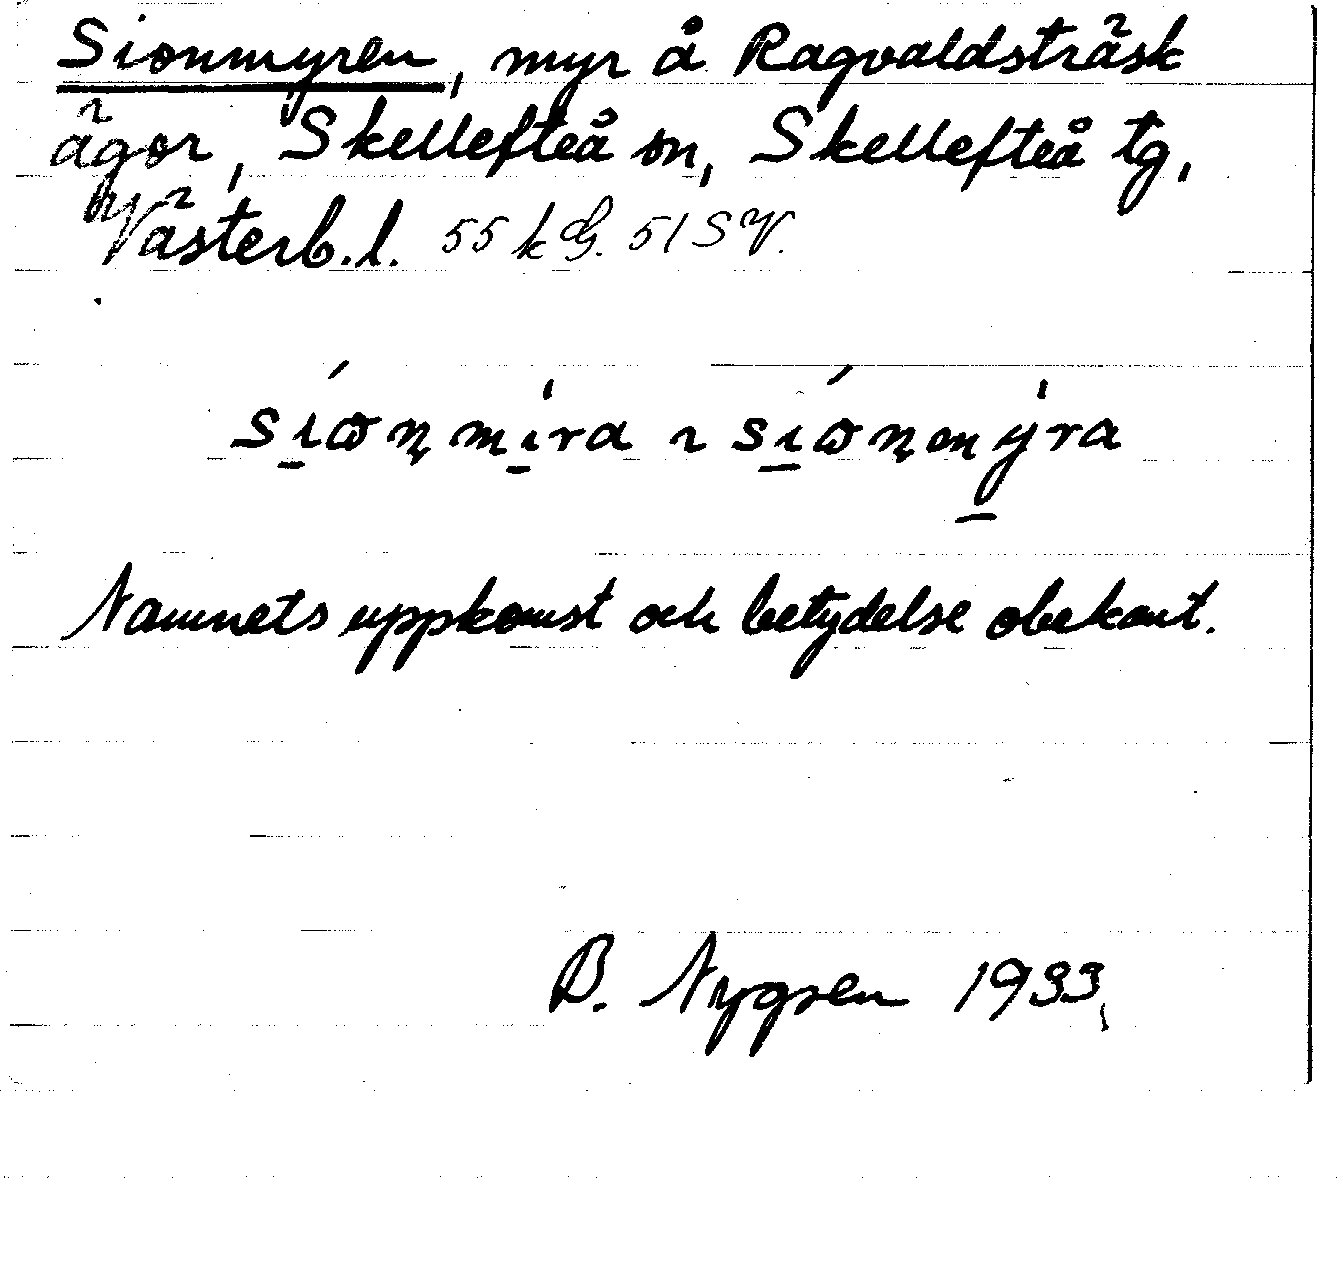 Sionmyren, myr å Ragvaldsträsk
ägor, Skellefteå sn, Skellefteå tg,
Västerb.l. 55 k G. 51 SV.
Namnets uppkomst och betydelse obekant.
B. Nygren 1933.